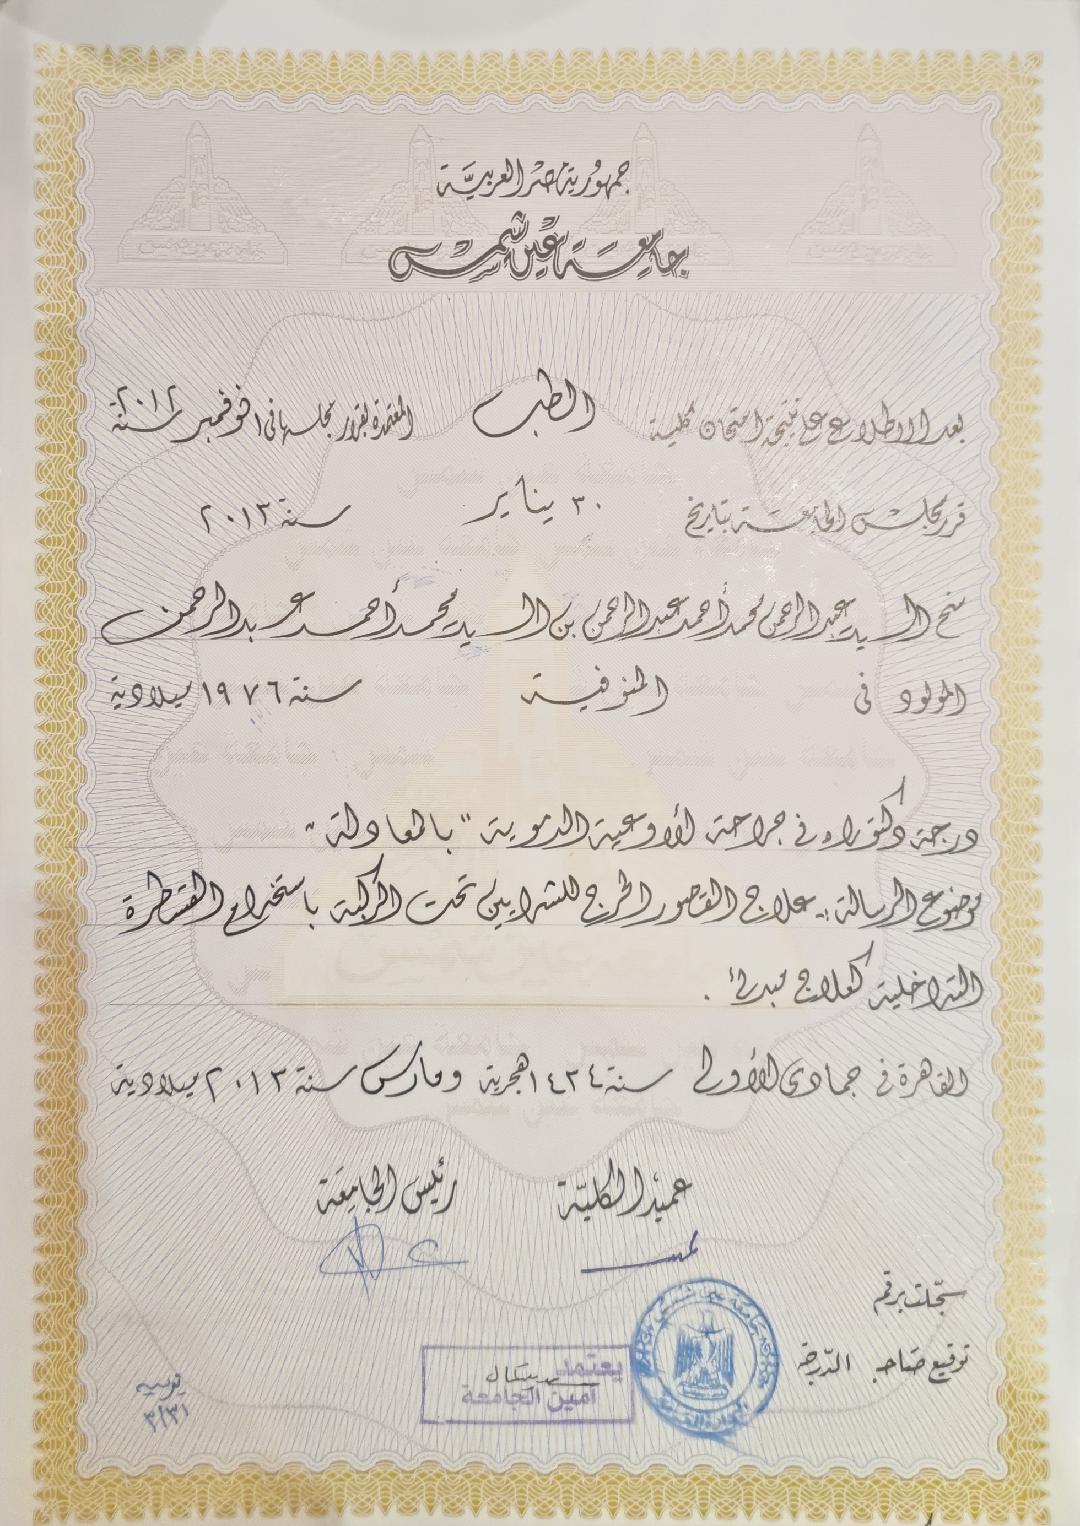 جمهورية مصر العربية
جامعة عين شمس
بعد الاطلاع على نتيجة امتحان كلية الطب المعتمدة بقرار مجلسها فى ١ نوفمبر سنة ٢٠١٢
قرر مجلس الجامعة بتاريخ ٣٠ يناير سنة ٢٠١٣
منح السيد عبدالرحمن محمد أحمد عبدالرحمن بن السيد محمد أحمد عبدالرحمن
المولود فى المنوفية سنة ١٩٧٦ ميلادية
درجة دكتوراه في جراحة الأوعية الدموية "بالمعادلة"
موضوع الرسالة :- علاج القصور الحرج للشرايين تحت الركبة باستخدام القسطرة
التداخلية كعلاج مبدئ .
القاهرة فى جمادى الأولى سنة ١٤٣٤ هجرية ومارس سنة ٢٠١٣ ميلادية
عميد الكلية رئيس الجامعة
سجلت برقم
توقيع صاحب الدرجة
يعتمد
أمين الجامعة
جامعة عين شمس
٣/٣١